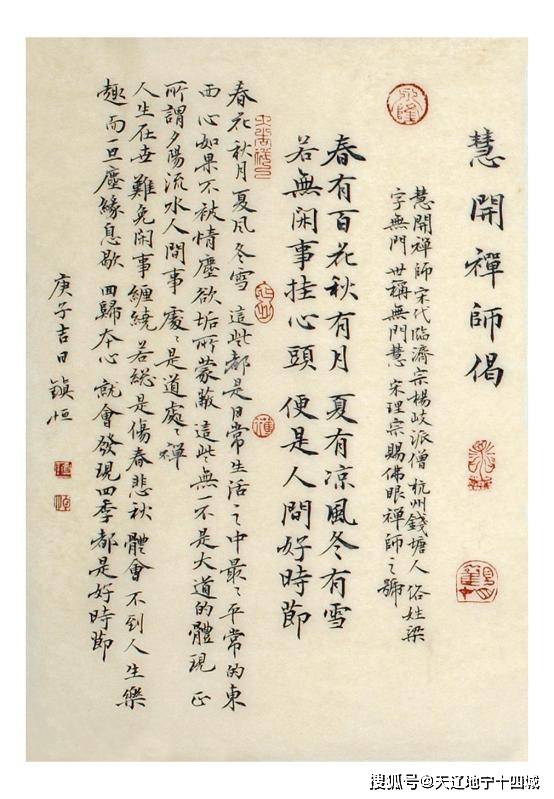 慧開禪師偈
慧開禪師 宋代临濟宗楊岐派僧 杭州錢塘人 俗姓梁
字無門 世稱無門慧 宋理宗賜佛眼禪師之號
春有百花秋有月 夏有凉風冬有雪
若無闲事挂心頭 便是人間好時節
春花秋月夏风冬雪 這些都是日常生活之中最々平常的東
西 心如果不被情塵欲垢所蒙蔽 這些無一不是大道的體現 正
所謂夕陽流水人間事 處々是道處々禪
人生在世 難免闲事纏繞 若総是傷春悲秋 體會不到人生樂
趣 而一旦塵緣息歇 回歸本心 就會發現四季都是好時節
庚子吉日 鎮恒
搜狐号@天辽地宁十四城